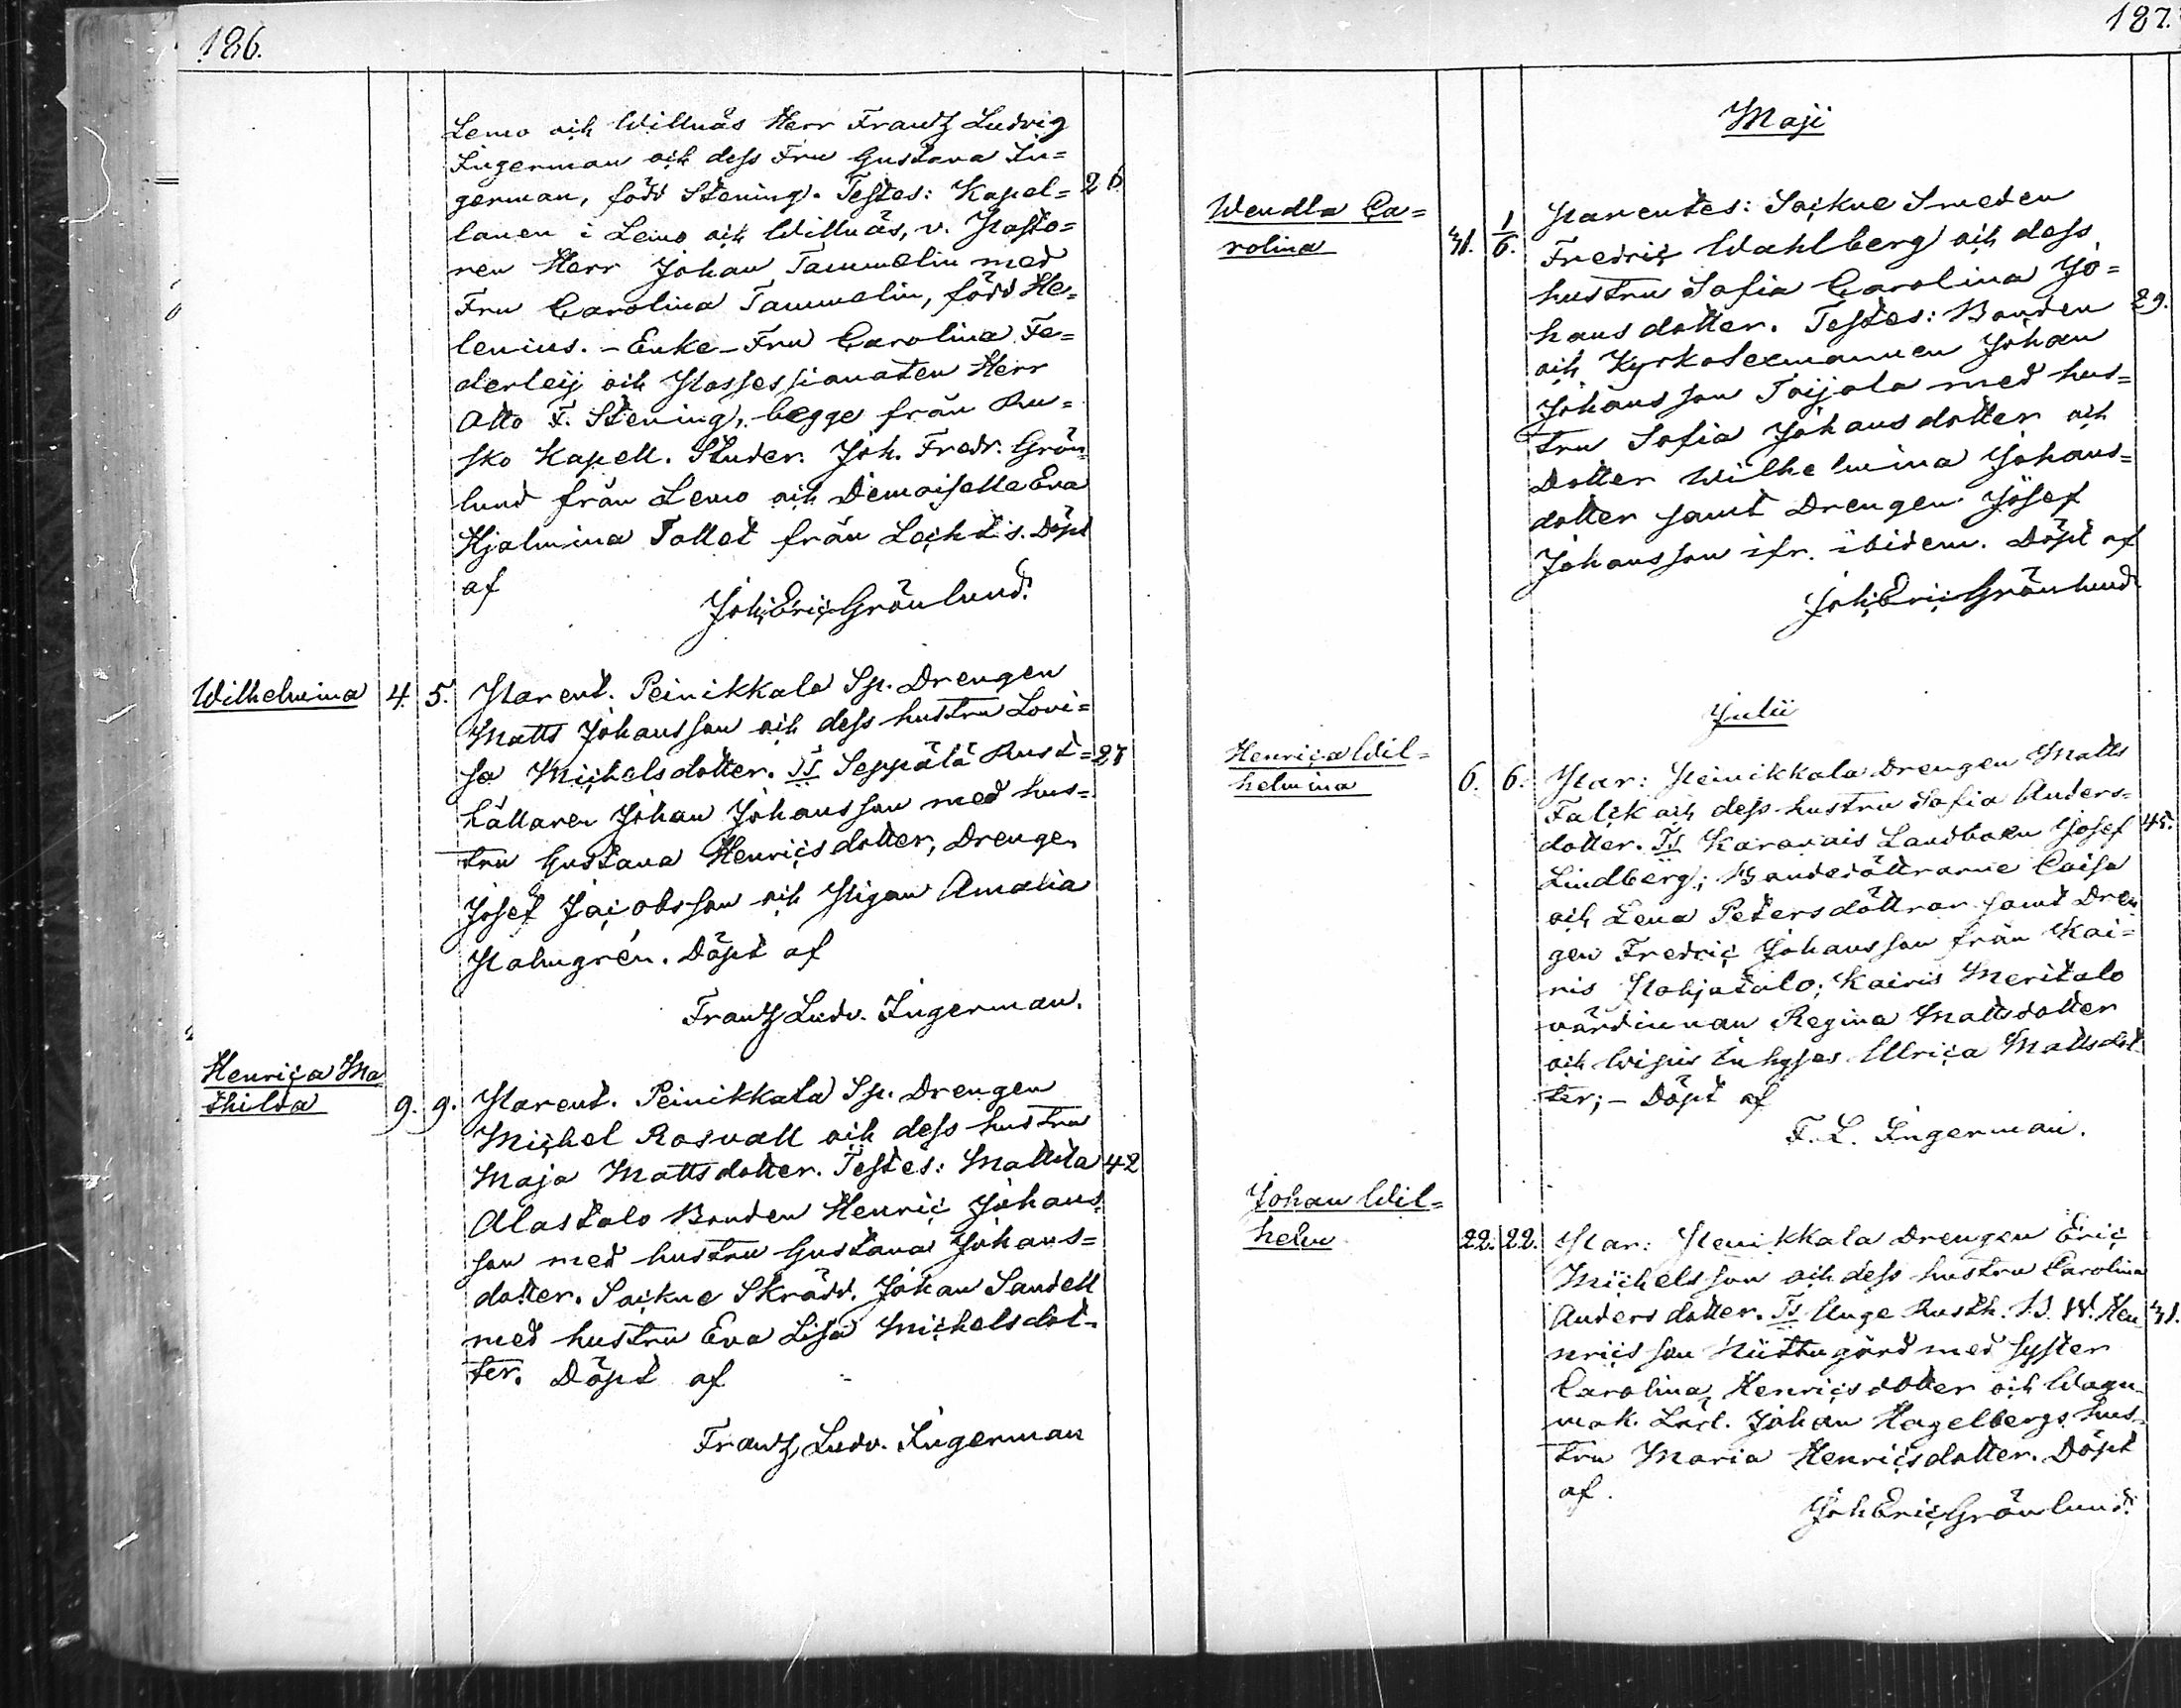 186.
Lemo och Willnäs Herr Frantz Ludvig
Ingerman och dess Fru Gustava In=
german, född Stening. Testes: Kapel= 26
lanen i Lemo och Willnäs, v. Pasto=
ren Herr Johan Tammelin med
Fru Carolina Tammelin, född He=
lenius. – Enke-Fru Carolina Fe=
derleij och Possessionaten Herr
Otto F. Stening, begge från Ru=
sko Kapell. Studer. Joh. Fredr. Grön=
lund från Lemo och Demoiselle Eva
Hjalmina Tallet från Lechtis. Döpt
af
Joh. Eric Grönlund.
Wilhelmina 4. 5. Parent. Peinikkala Sp. Drengen
Matts Johansson och dess hustru Lovi=
sa Michelsdotter. TT Seppälä Rust= 27
hållaren Johan Johansson med hus=
tru Gustava Henricsdotter, Drengen
Josef Jacobsson och Pigan Amalia
Palmgrén. Döpt af
Frantz Ludv. Ingerman.
Henrica Ma
thilda 9. 9. Parent. Peinikkala Sp. Drengen
Michel Rosvall och dess hustru
Maja Mattsdotter. Testes: Mattila 42
Alastalo Bonden Henric Johans=
son med hustru Gustava Johans=
dotter. Sockne Skrädd. Johan Sandell
med hustru Eva Lisa Michelsdot=
ter. Döpt af
Frantz Ludv. Ingerman
187.
Maji
Wendla Ca=
rolina 31. 1/6. Parentes: Sockne Smeden
Fredric Wahlberg och dess
hustru Sofia Carolina Jo=
hansdotter. Testes: Bonden 29.
och Kyrkosexmannen Johan
Johansson Toijola med hus=
tru Sofia Johansdotter och
Dotter Wilhelmina Johans=
dotter samt Drengen Josef
Johansson ifr. ibidem. Döpt af
Joh. Eric Grönlund
Julii
Henrica Wil=
helmina 6. 6. Par: Peinikkala Drengen Matts
Falck och dess hustru Sofia Anders=
dotter. TT Karanais Landboen Josef 45.
Lindberg; Bondedöttrarne Caisa
och Lena Petersdöttrar samt Dren
gen Fredric Johansson från Kai=
ris Pohjatalo; Kairis Meritalo
värdinnan Regina Mattsdotter
och Inhyses Ulrica Mattsdot
ter; – Döpt af
F. L. Ingerman.
Johan Wil=
helm 22. 22. Par: Penikkala Drengen Eric
Michelsson och dess hustru Carolina
Andersdotter. TT Auge Rusth. J. W. Hen= 31.
ricsson Niittugård med syster
Carolina Henricsdotter och Wagn=
mak. Lärl. Johan Hagelbergs hus=
tru Maria Henricsdotter. Döpt
af.
Joh Eric Grönlund.